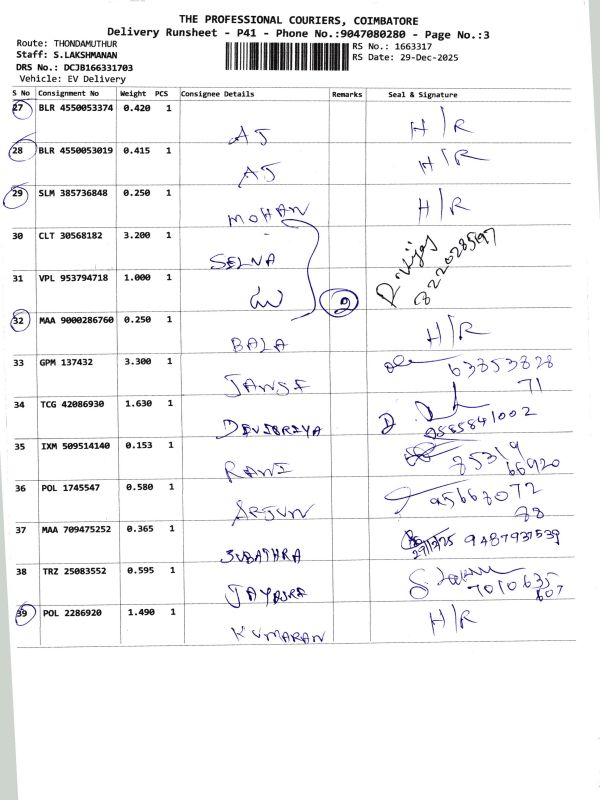 THE PROFESSIONAL COURIERS, COIMBATORE
Delivery Runsheet - P41 - Phone No.:9047080280 - Page No.:3
Route: THONDAMUTHUR
Staff: S.LAKSHMANAN
DRS No.: DCJB166331703
Vehicle: EV Delivery
RS No.: 1663317
RS Date: 29-Dec-2025
S No Consignment No Weight PCS Consignee Details Remarks Seal & Signature
27 BLR 4550053374 0.420 1 AJ H/R
28 BLR 4550053019 0.415 1 AJ H/R
29 SLM 385736848 0.250 1 MOHAN H/R
30 CLT 30568182 3.200 1 SELVA
31 VPL 953794718 1.000 1 2 R.Vijay
32 MAA 9000286760 0.250 1 BALA H/R
33 GPM 137432 3.300 1 63853828
71
34 TCG 42086930 1.630 1 DEVIPRIYA
35 IXM 509514140 0.153 1 RANI 85319
66920
36 POL 1745547 0.580 1 ARJUN 95667072
88
37 MAA 709475252 0.365 1 SUBATHRA 29/12/25 9487937539
38 TRZ 25083552 0.595 1 7010635
607
39 POL 2286920 1.490 1 KUMARAN H/R